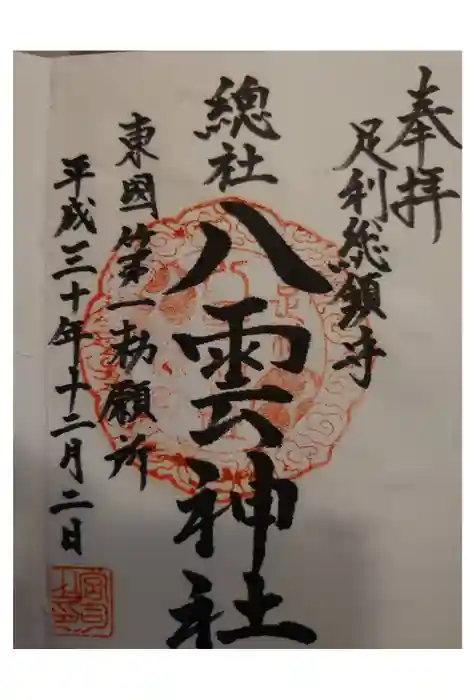 奉拝
足利総鎮守
總社
八雲神社
東国第一勅願所
平成三十年十二月二日